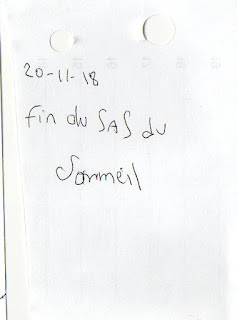 20-11-18
fin du SAS du
Sommeil